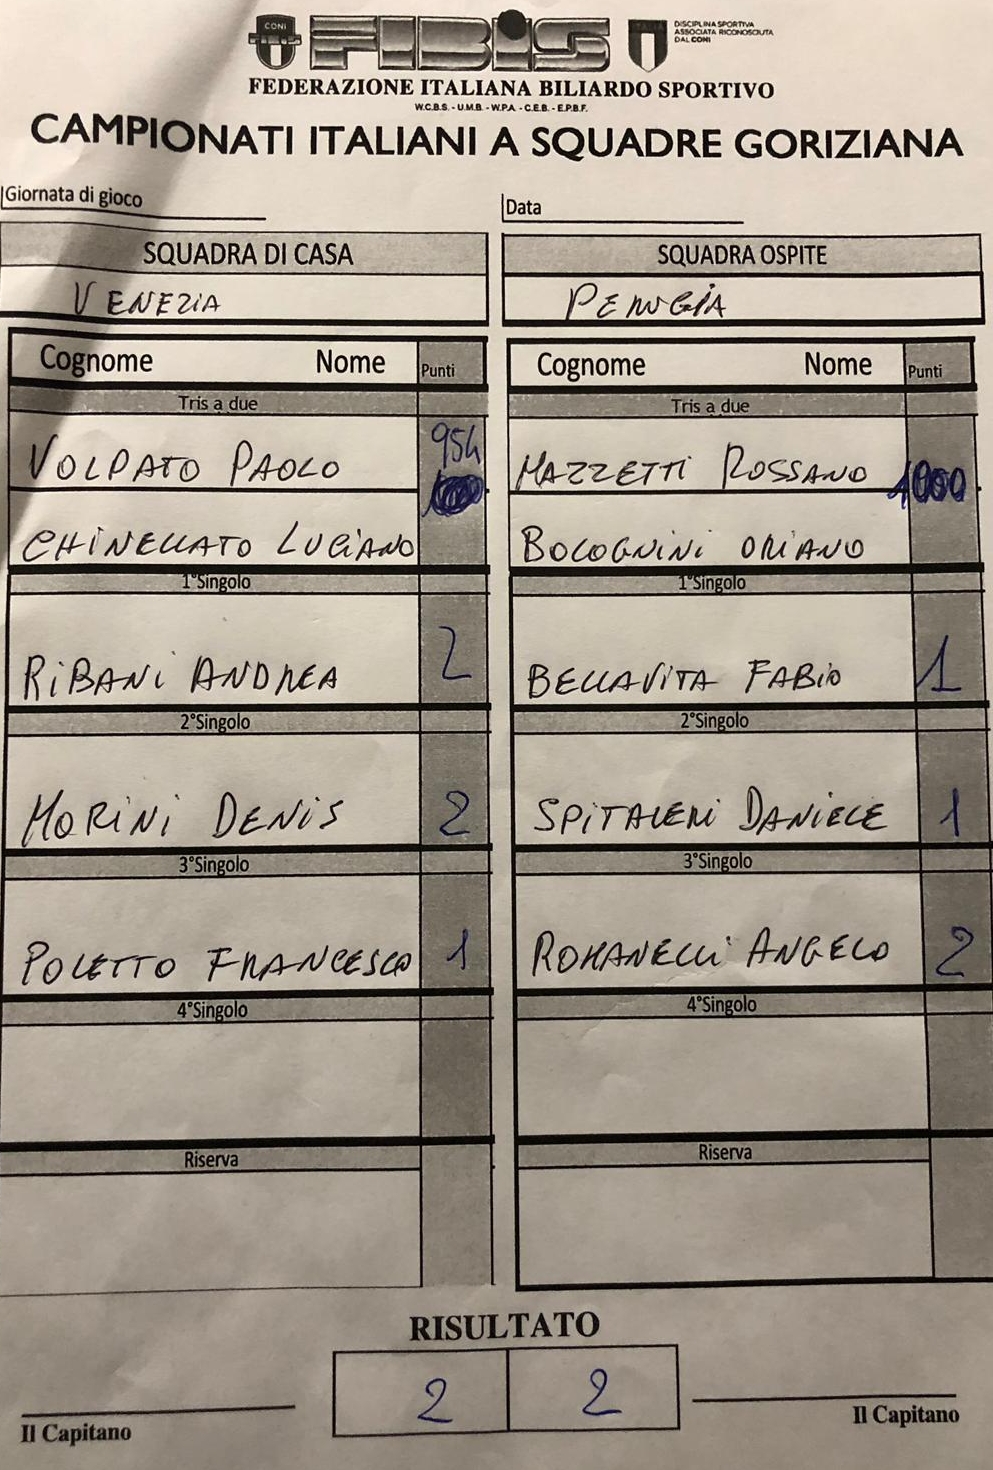 CONI
FIBiS
ITALIA
DISCIPLINA SPORTIVA
ASSOCIATA RICONOSCIUTA
DAL CONI
FEDERAZIONE ITALIANA BILIARDO SPORTIVO
W.C.B.S. - U.M.B. - W.P.A. - C.E.B. - E.P.B.F.
CAMPIONATI ITALIANI A SQUADRE GORIZIANA
Giornata di gioco
Data
SQUADRA DI CASA
SQUADRA OSPITE
VENEZIA
PERUGIA
Cognome Nome Punti
Cognome Nome Punti
Tris a due
Tris a due
954
VOLPATO PAOLO
MAZZETTI ROSSANO 1000
CHINELLATO LUCIANO
BOLOGNINI ORIANO
1°Singolo
1°Singolo
RIBANI ANDREA 2
BELLAVITA FABIO 1
2°Singolo
2°Singolo
MORINI DENIS 2
SPITALERI DANIELE 1
3°Singolo
3°Singolo
POLETTO FRANCESCO 1
ROMANELLI ANGELO 2
4°Singolo
4°Singolo
Riserva
Riserva
RISULTATO
2 2
Il Capitano
Il Capitano